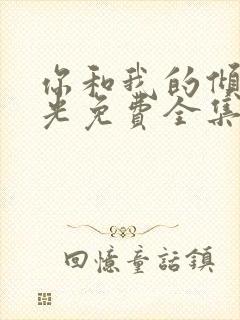 你和我的傾
光免費全集
回憶童話鎮